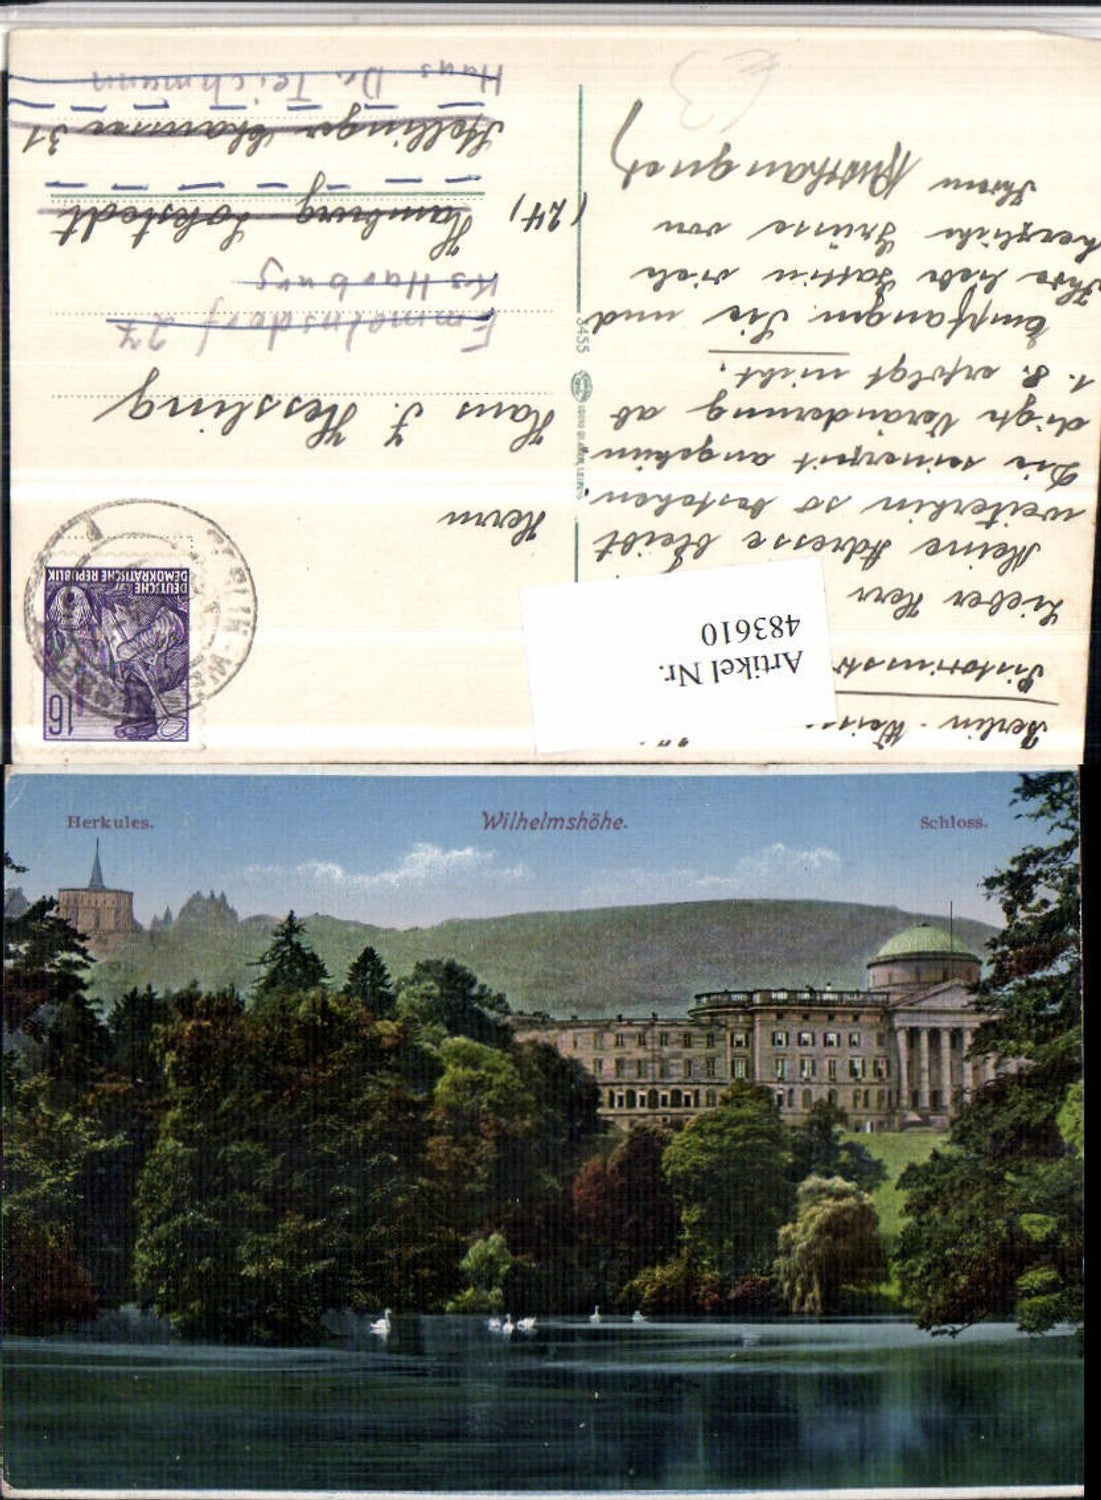 Berlin-Weiss
Pistoriusstr
Lieber Herr
Meine Adresse bleibt
weiterhin so bestehen.
Die seinerzeit angekün
digte Veränderung ab
1. 8. erfolgt nicht.
Empfangen Sie und
Ihre liebe Gattin viele
herzliche Grüsse von
Ihrem
Artikel Nr.
483610
3455
16
DEUTSCHE
DEMOKRATISCHE REPUBLIK
Herrn
Hans J. Hessling
Emmelnsdorf 27
Ks Harburg
(24) Hamburg Lokstedt
Stellinger Chaussee 31
Haus Dr. Teichmann
Herkules.
Wilhelmshöhe.
Schloss.